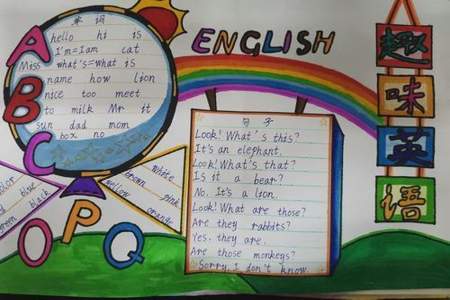 单词
hello hi is
I'm=I am cat
Miss what's=what is
name how lion
nice too meet
to milk Mr it
sun dad mom
box no
A
B
C
O
P
Q
color
blue
green black
white
brown pink
yellow
orange
ENGLISH
句子
Look! What's this?
It's an elephant.
Look! What's that?
Is it a bear?
No. It's a lion.
Look! What are those?
Are they rabbits?
Yes. they are.
Are those monkeys?
Sorry, I don't know.
趣
味
英
语